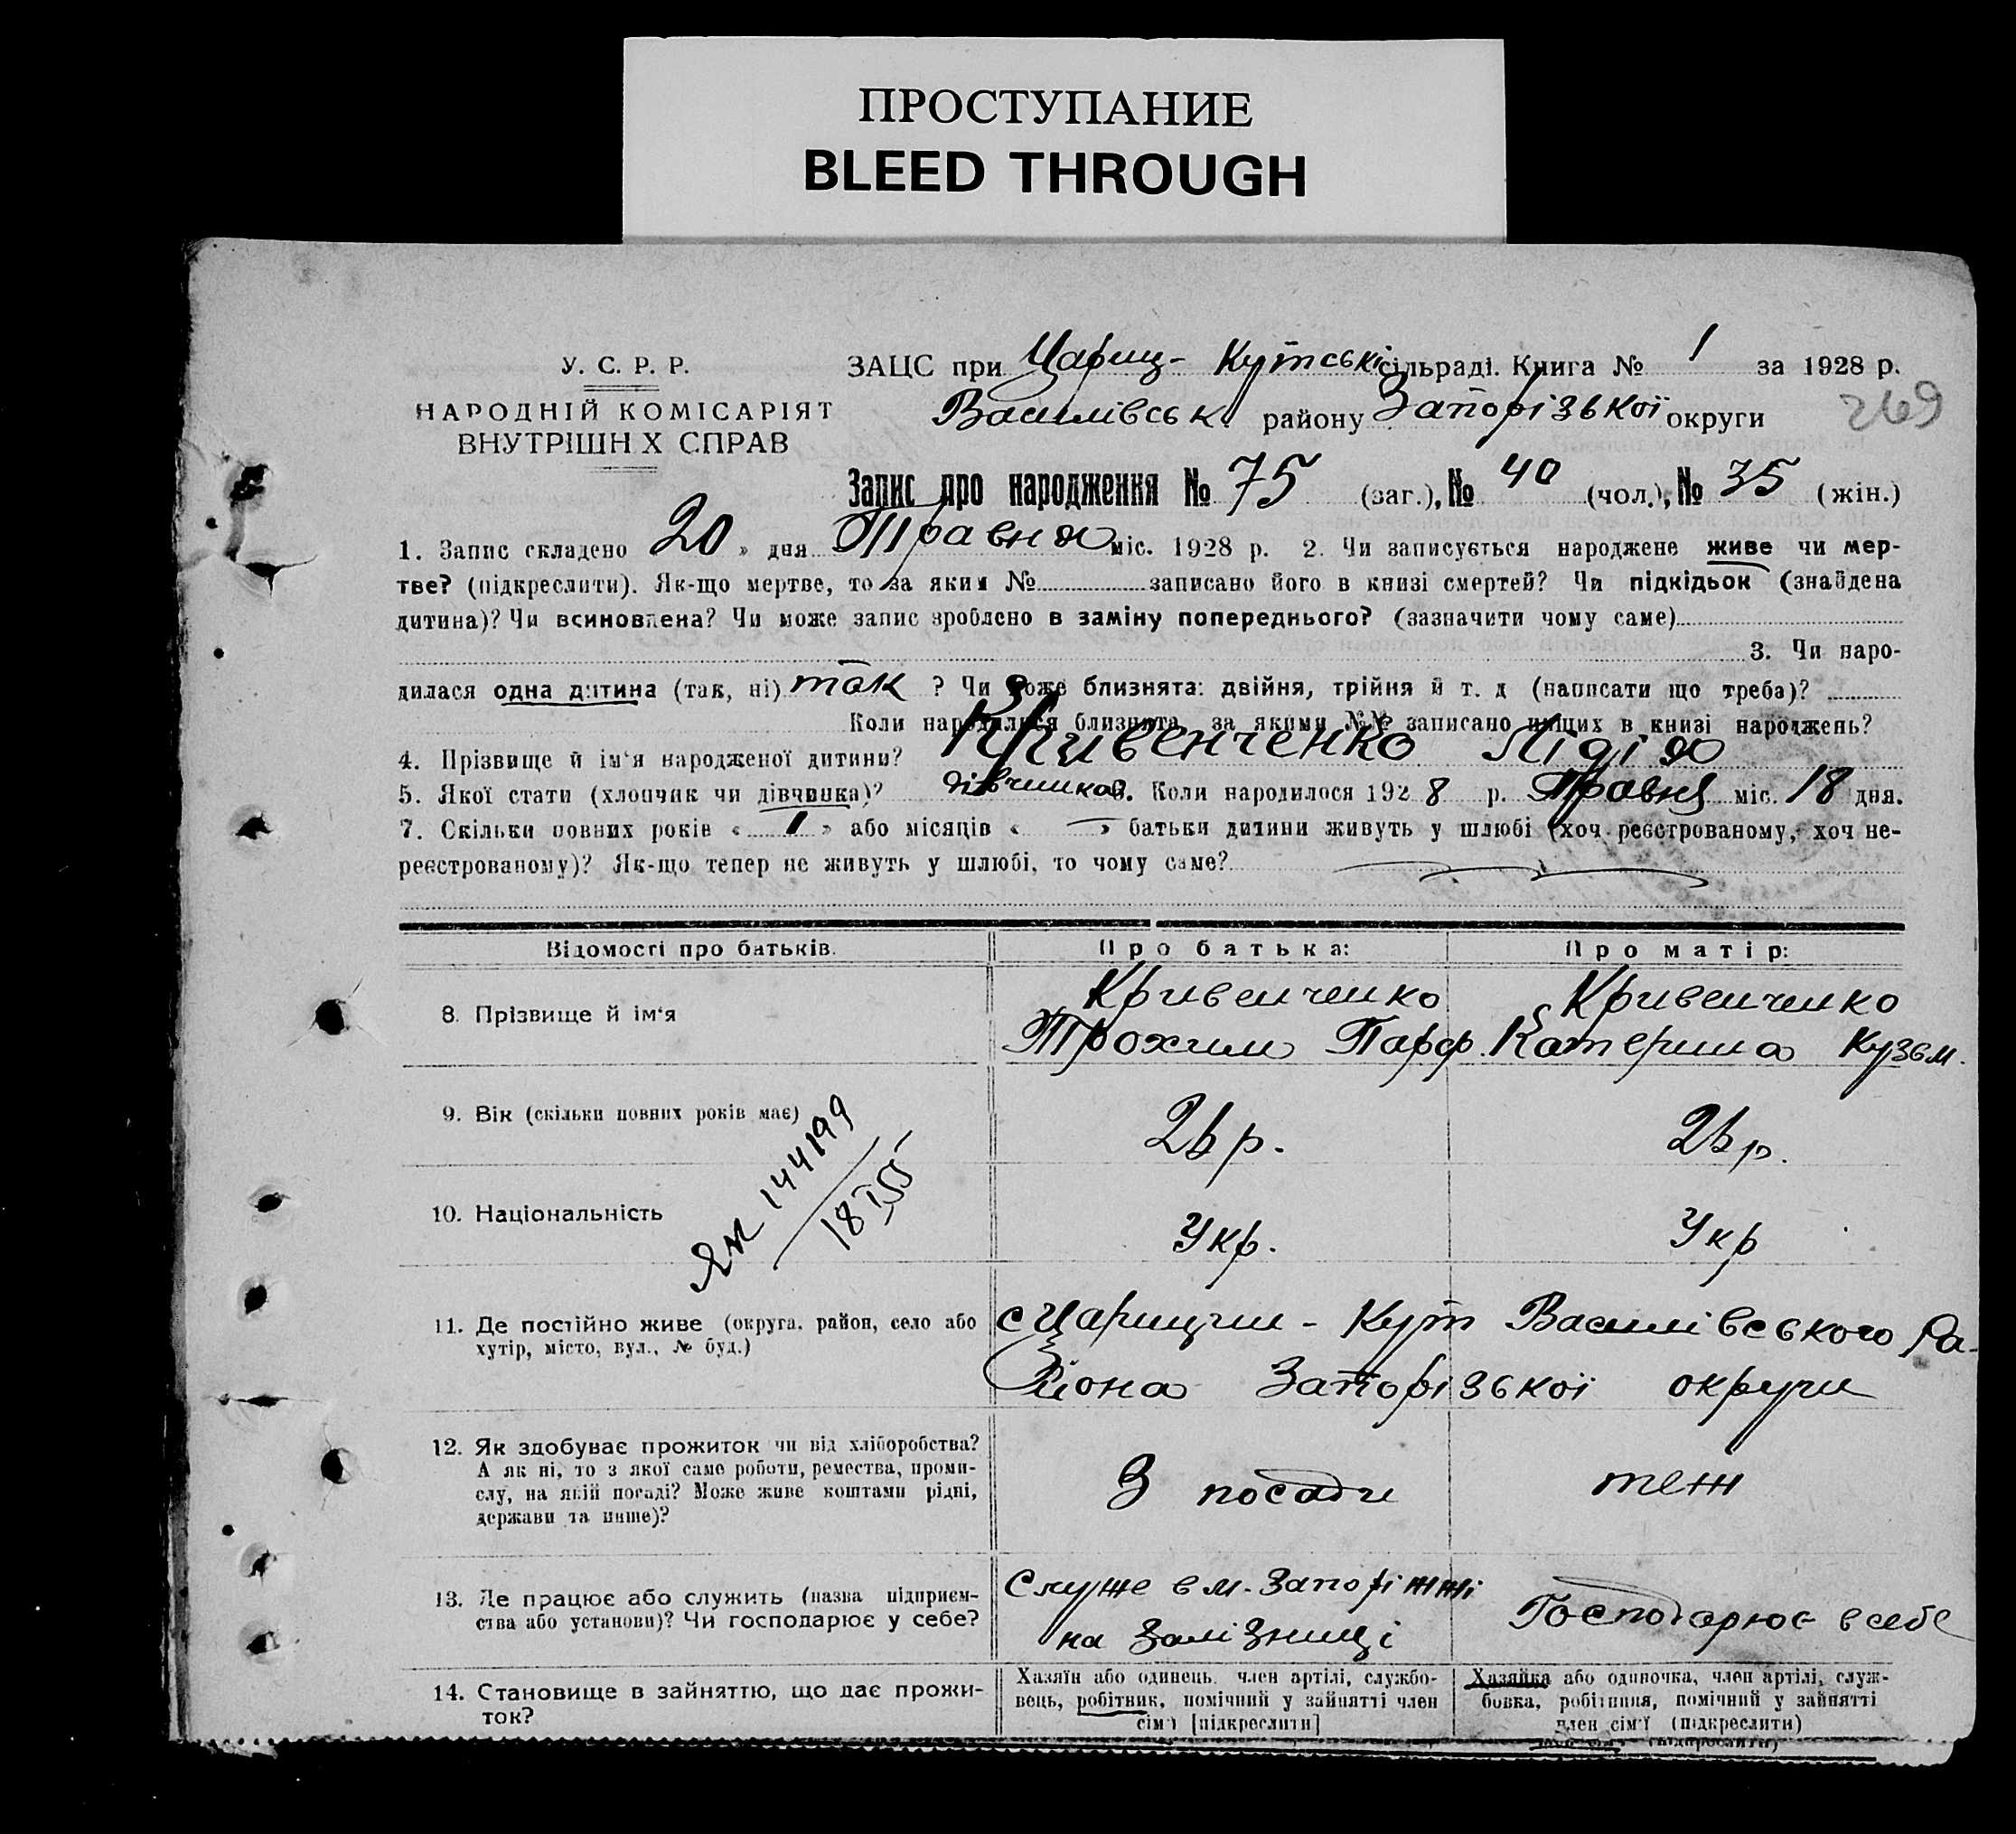 ПРОСТУПАНИЕ
BLEED THROUGH
У. С. Р. Р.
НАРОДНІЙ КОМІСАРІЯТ
ВНУТРІШН Х СПРАВ
ЗАЦС при Цариц- Кутській сільраді. Книга № 1 за 1928 р.
Василівськ. району Запорізької округи
269
Запис про народження № 75 (заг.), № 40 (чол.), № 35 (жін.)
1. Запис складено 20 » дня Травня міс. 1928 р. 2. Чи записується народжене живе чи мер-
тве? (підкреслити). Як-що мертве, то за яким № записано його в книзі смертей? Чи підкідьок (знайдена
дитина)? Чи всиновлена? Чи може запис зроблено в заміну попереднього? (зазначити чому саме)
3. Чи наро-
дилася одна дитина (так, ні) так ? Чи може близнята: двійня, трійня й т. д (написати що треба)?
Коли народилися близнята, за якими №№ записано инших в книзі народжень?
4. Прізвище й ім'я народженої дитини? Кривенченко Лідія
5. Якої стати (хлопчик чи дівчинка)? дівчинка 6. Коли народилося 1928 р. Травня міс. 18 дня.
7. Скільки повних років « 1 » або місяців « — » батьки дитини живуть у шлюбі (хоч реєстрованому, хоч не-
реєстрованому)? Як-що тепер не живуть у шлюбі, то чому саме?
Відомості про батьків. Про батька: Про матір:
8. Прізвище й ім'я
Кривенченко
Трохим Парф.
Кривенченко
Катерина Кузьм.
9. Вік (скільки повних років має)
2
р.
2
р.
ЯМ 144199
18 I 55
10. Національність
Укр.
Укр
11. Де постійно живе (округа, район, село або
хутір, місто, вул., № буд.)
с Царицин - Кут Василівського Ра-
йона Запорізької округи
12. Як здобуває прожиток чи від хліборобства?
А як ні, то з якої саме роботи, ремества, проми-
слу, на якій посаді? Може живе коштами рідні,
держави та инше)?
З посади
теж
13. Де працює або служить (назва підприєм-
ства або установи)? Чи господарює у себе?
Служе в м. Запоріжжі
на Залізниці
Господарює в себе
14. Становище в зайняттю, що дає прожи-
ток?
Хазяїн або одинець, член артілі, службо-
вець, робітник, помічний у зайнятті член
сім'ї [підкреслити]
Хазяйка або одиночка, член артілі, служ-
бовка, робітниця, помічний у зайнятті
член сім'ї (підкреслити)